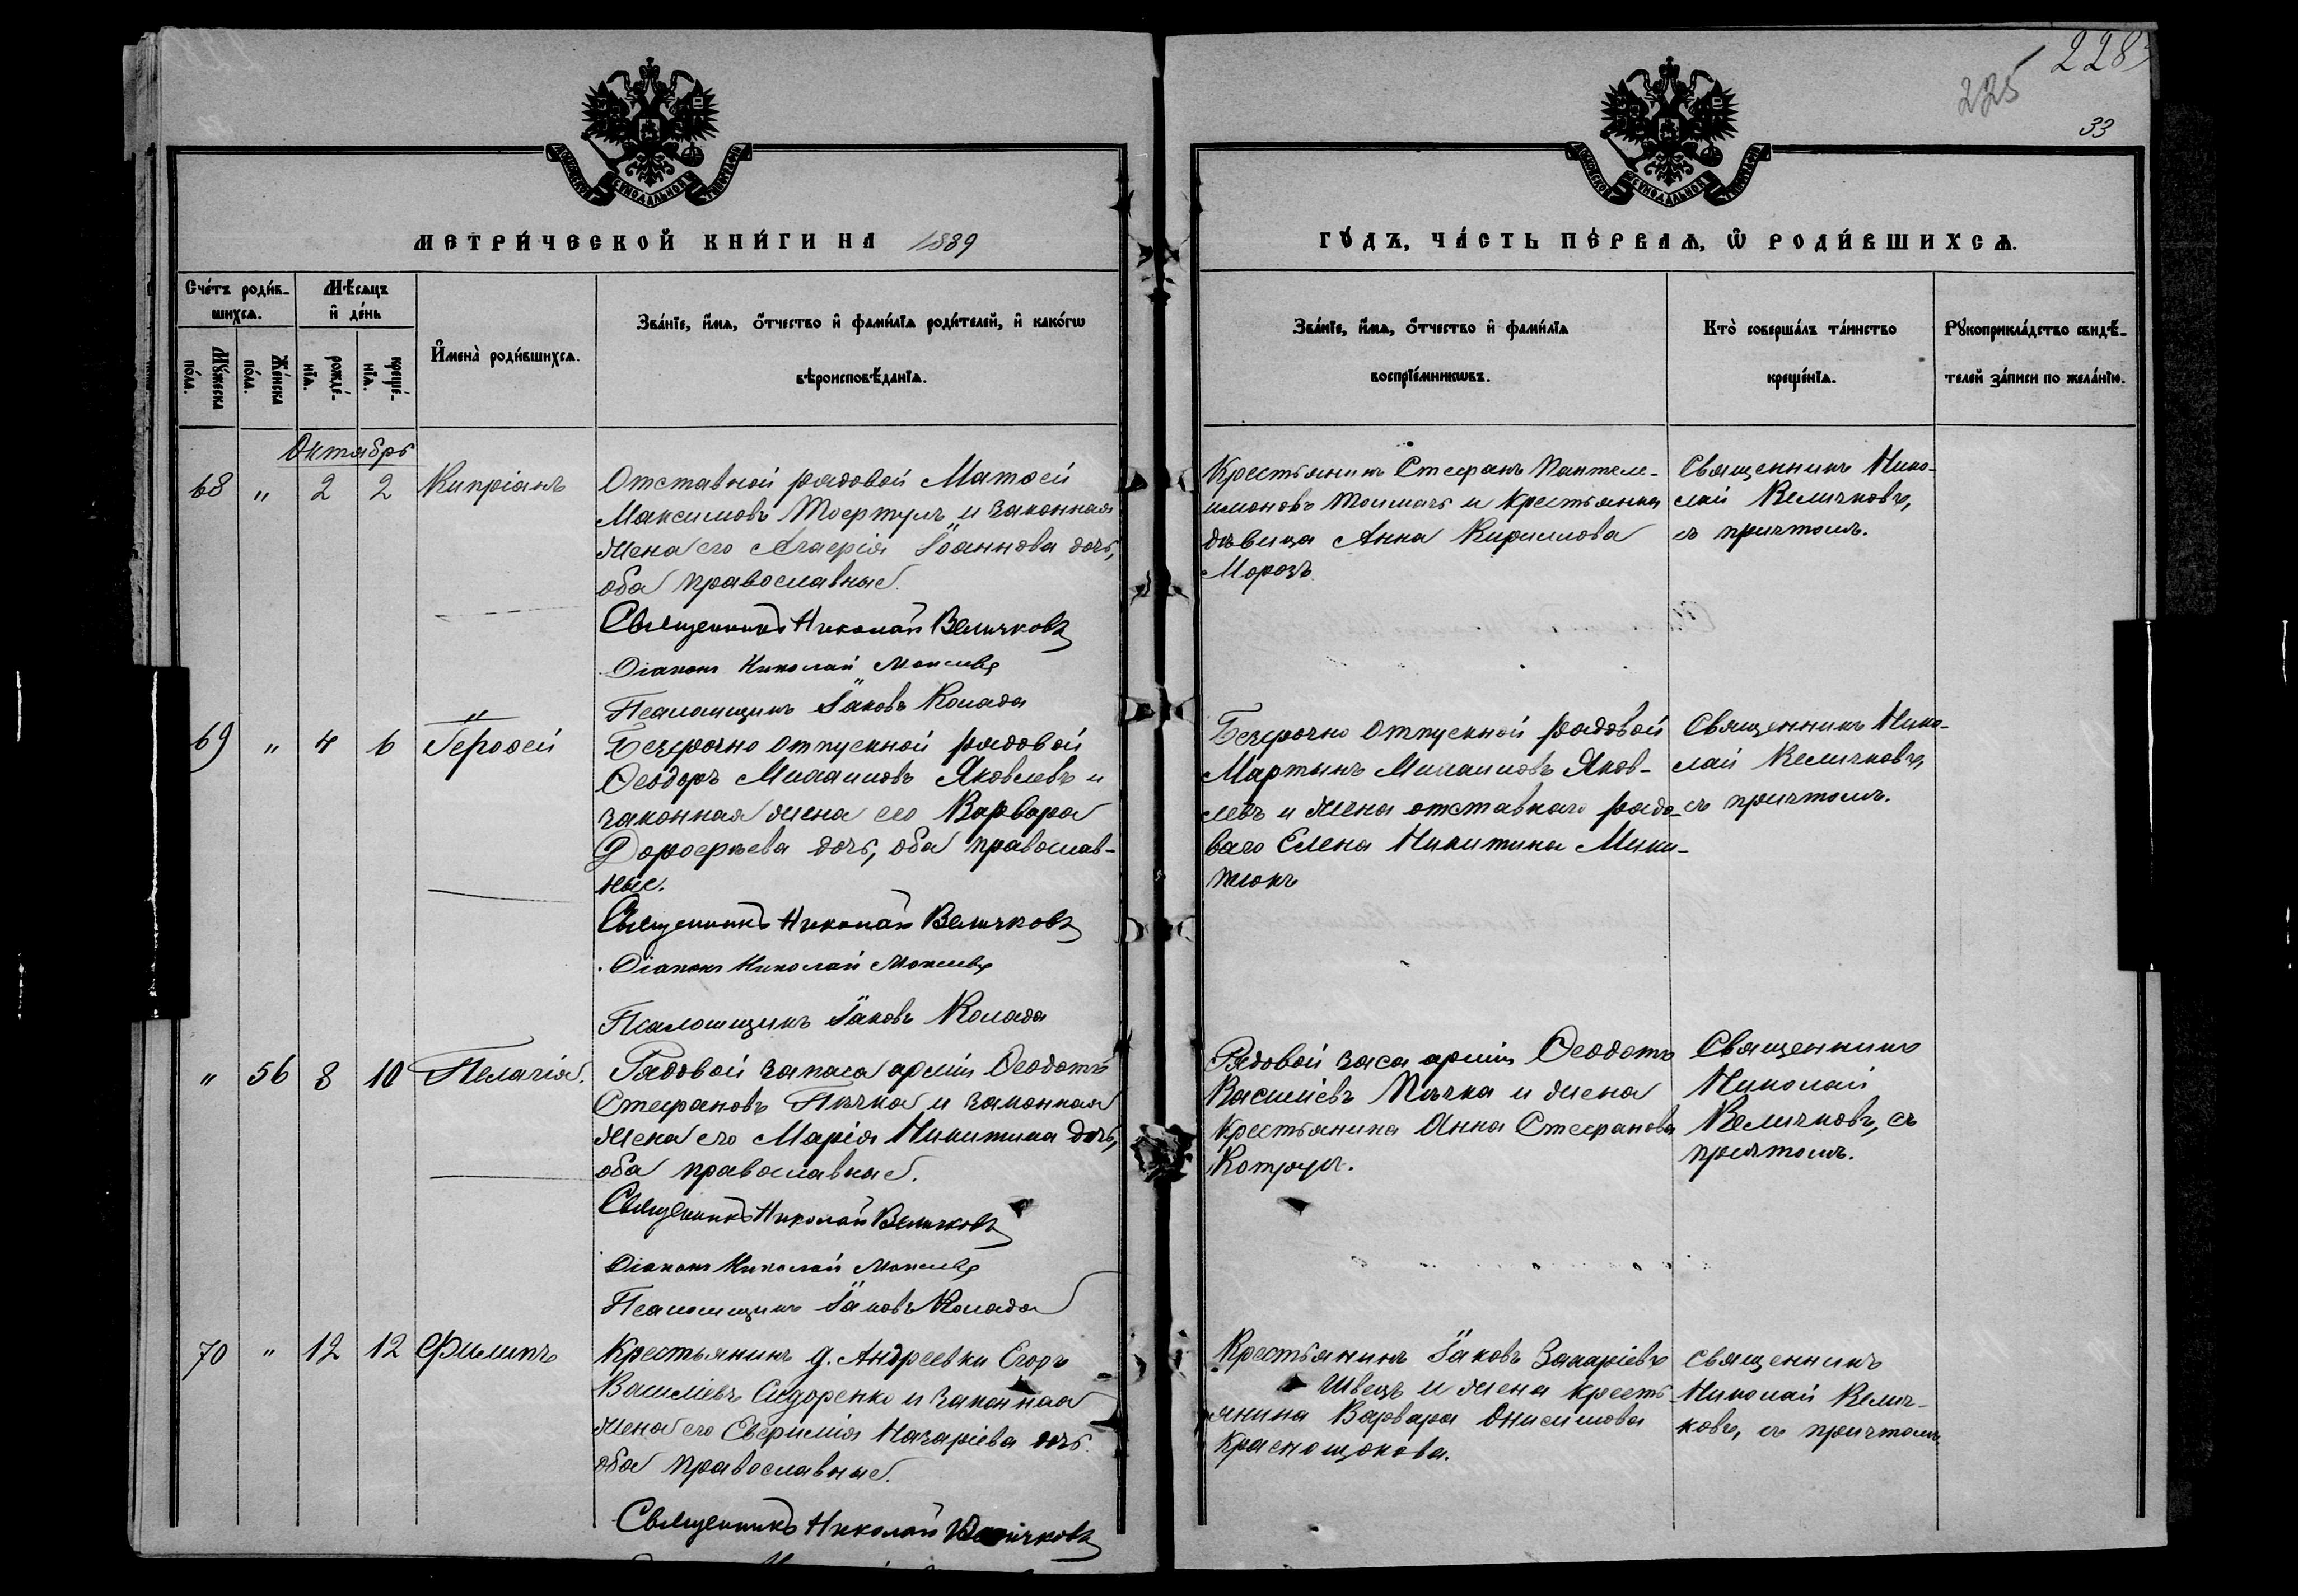 2283
225
33
МОСКОВСКОЙ СѴНОДАЛЬНОЙ ТИПОГРАФІИ
МОСКОВСКОЙ СѴНОДАЛЬНОЙ ТИПОГРАФІИ
МЕТРИ́ЧЕСКОЙ КНИ́ГИ НА 1889
ГО́ДЪ, ЧА́СТЬ ПЕ́РВАѦ, Ѿ РОДИ́ВШИХСѦ.
Сче́тъ роди́в-
шихсѧ.
Мѣ́сѧцъ
и҆ де́нь
Мꙋ́жеска
по́ла.
Же́нска
по́ла.
рожде́-
нїѧ.
креще́-
нїѧ.
И҆мена̀ роди́вшихсѧ.
Зва́нїе, и҆́мѧ, ѻ҆́тчество и҆ фами́лїѧ роди́телей, и҆ како́гѡ
вѣроисповѣ́данїѧ.
Зва́нїе, и҆́мѧ, ѻ҆́тчество и҆ фами́лїѧ
воспрїе́мникѡвъ.
Кто̀ соверша́лъ та́инство
креще́нїѧ.
Рꙋкоприкла́дство свидѣ́-
телей за́писи по жела́нїю.
Октябрь
68 " 2 2 Кипріанъ
Отставной рядовой Матѳей
Максимовъ и законная
жена его Агаѳія Іоаннова дочь,
оба православные.
Священникъ Николай Величковъ
Діаконъ Николай
Псаломщикъ Іаковъ Колада
Крестьянинъ Стефанъ Пантеле-
имоновъ Толмачъ и крестьянка
дѣвица Анна Кирилова
Морозъ
Священникъ Нико-
лай Величковъ,
съ причтомъ.
69 " 4 6 Іероѳей
Безсрочно отпускной рядовой
Ѳеодоръ Михаиловъ Яковлевъ и
законная жена его Варвара
Дороѳеева дочь, оба православ-
ные.
Священникъ Николай Величковъ
Діаконъ Николай
Псаломщикъ Іаковъ Колада
Безсрочно отпускной рядовой
Мартынъ Михаиловъ Яков-
левъ и жена отставнаго рядо-
ваго Елена Никитина Мики-
тюкъ
Священникъ Нико-
лай Величковъ,
съ причтомъ.
" 56 8 10 Пелагія.
Рядовой запаса арміи Ѳеодотъ
Стефановъ Пѣчка и законная
жена его Марія Никитина дочь,
оба православные.
Священникъ Николай Величковъ
Діаконъ Николай
Псаломщикъ Іаковъ Колада
Рядовой заса арміи Ѳеодотъ
Василіевъ Пѣчка и жена
крестьянина Анна Стефанова
Котруцъ.
Священникъ
Николай
Величковъ, съ
причтомъ.
70 " 12 12 Филипъ
Крестьянинъ д. Андреевки Егоръ
Василіевъ Сидоренко и законная
жена его Евфимія Назаріева дочь
оба православные.
Священникъ Николай Величковъ
Крестьянинъ Іаковъ Захаріевъ
Швецъ и жена кресть-
янина Варвара Онисимова
Краснощокова.
Священникъ
Николай Велич-
ковъ, съ причтомъ